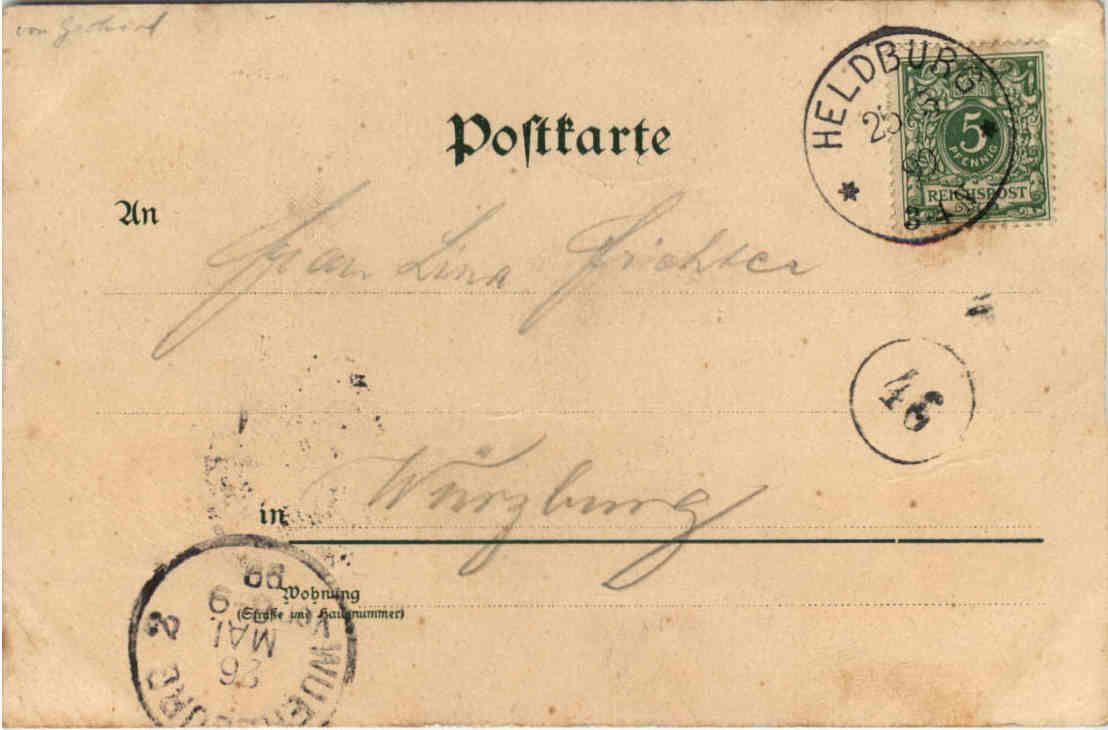 HELDBURG
25 5
99
8-
5
PFENNIG
REICHSPOST
Postkarte
An
Frau Lina Richter
46
in Würzburg
Wohnung
(Straße und Hausnummer)
WUERZBURG 2
26
MAI
99